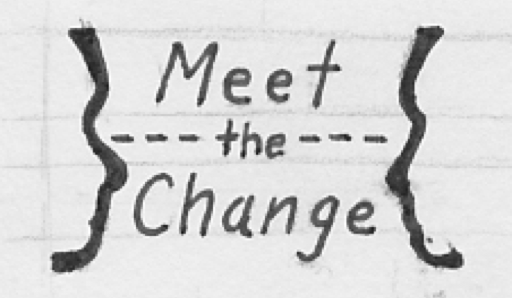 Meet
--- the ---
Change